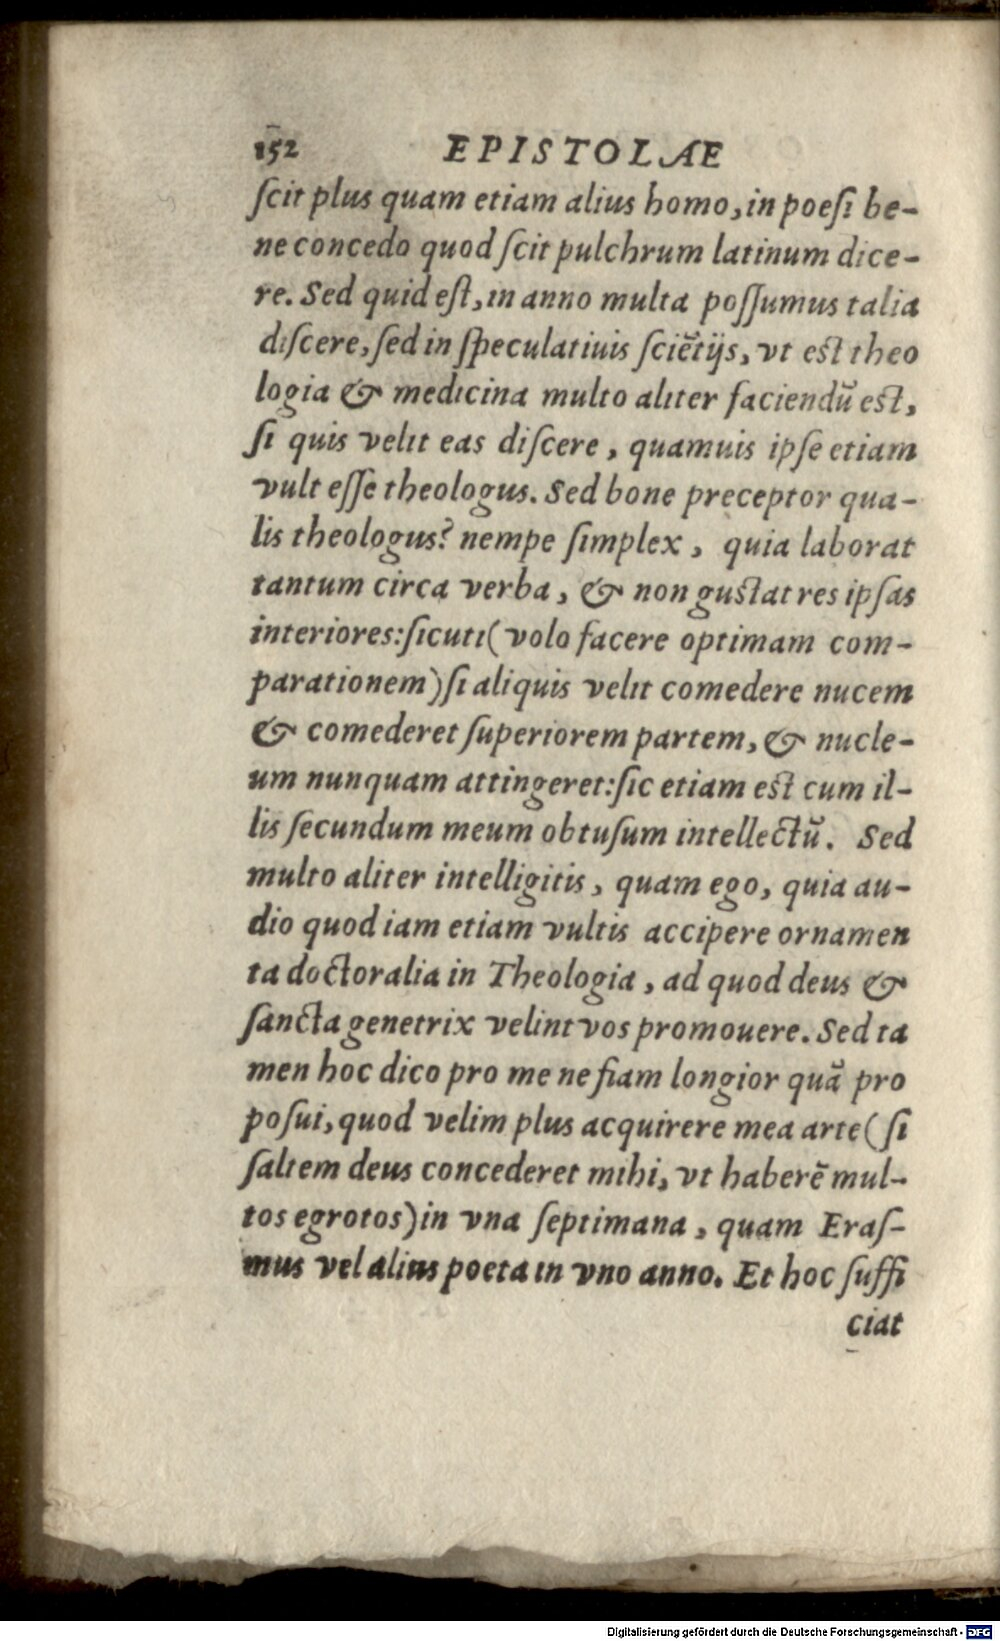 152 EPISTOLAE
ſcit plus quam etiam alius homo, in poeſi be-
ne concedo quod ſcit pulchrum latinum dice-
re. Sed quid eſt, in anno multa poſſumus talia
diſcere, ſed in ſpeculatiuis ſciẽtijs, vt eſt theo
logia & medicina multo aliter faciendũ eſt,
ſi quis velit eas diſcere, quamuis ipſe etiam
vult eſſe theologus. Sed bone preceptor qua-
lis theologus? nempe ſimplex, quia laborat
tantum circa verba, & non guſtat res ipſas
interiores: ſicuti (volo facere optimam com-
parationem) ſi aliquis velit comedere nucem
& comederet ſuperiorem partem, & nucle-
um nunquam attingeret: ſic etiam eſt cum il-
lis ſecundum meum obtuſum intellectũ. Sed
multo aliter intelligitis, quam ego, quia au-
dio quod iam etiam vultis accipere ornamen
ta doctoralia in Theologia, ad quod deus &
ſancta genetrix velint vos promouere. Sed ta
men hoc dico pro me ne fiam longior quã pro
poſui, quod velim plus acquirere mea arte (ſi
ſaltem deus concederet mihi, vt haberẽ mul-
tos egrotos) in vna ſeptimana, quam Eraſ-
mus vel alius poeta in vno anno. Et hoc ſuffi
ciat
Digitalisierung gefördert durch die Deutsche Forschungsgemeinschaft - DFG